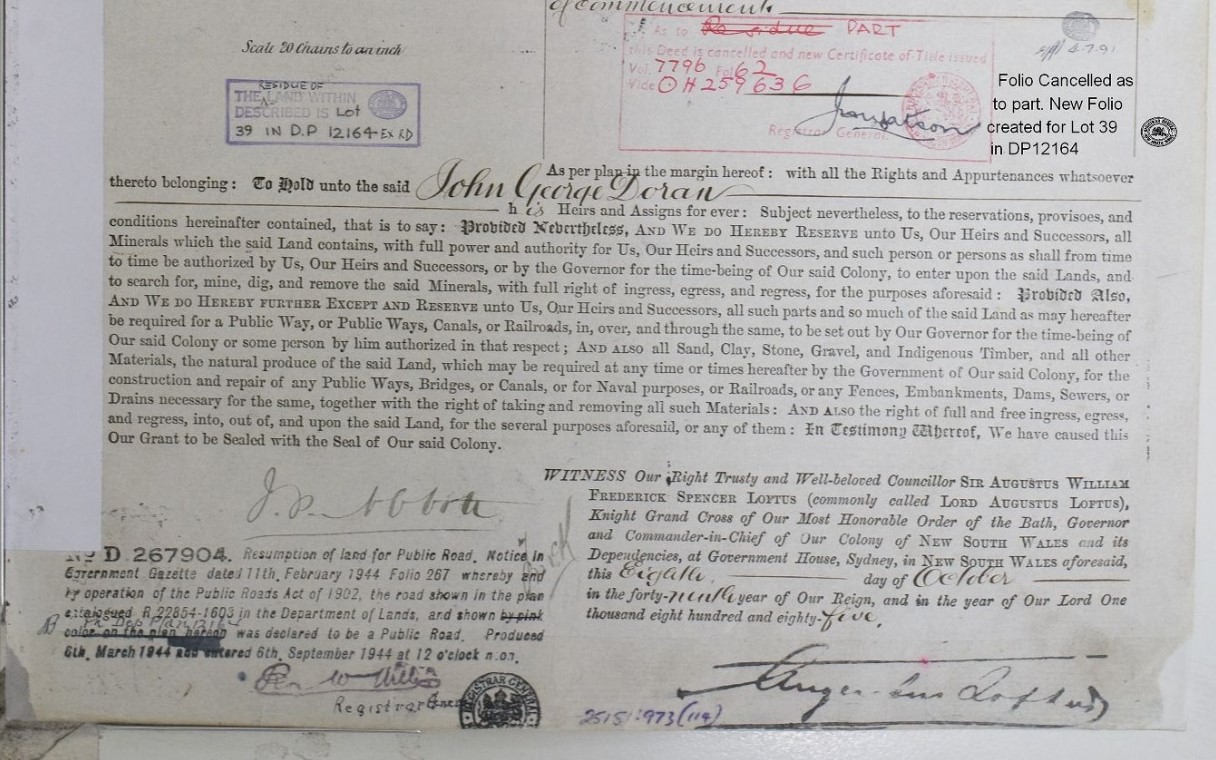 of commencement
Scale 20 Chains to an inch
RESIDUE OF
THE LAND WITHIN
DESCRIBED IS Lot
39 IN D.P 12164 Ex RD
As to Residue PART
this Deed is cancelled and new Certificate of Title issued
Vol. 7796 Fol 62
Vide OH 259636
Registrar General.
4.7.91
Folio Cancelled as
to part. New Folio
created for Lot 39
in DP12164
As per plan in the margin hereof: with all the Rights and Appurtenances whatsoever
thereto belonging: To Hold unto the said John George Doran
his Heirs and Assigns for ever: Subject nevertheless, to the reservations, provisoes, and
conditions hereinafter contained, that is to say: Provided Nevertheless, AND WE DO HEREBY RESERVE unto Us, Our Heirs and Successors, all
Minerals which the said Land contains, with full power and authority for Us, Our Heirs and Successors, and such person or persons as shall from time
to time be authorized by Us, Our Heirs and Successors, or by the Governor for the time-being of Our said Colony, to enter upon the said Lands, and
to search for, mine, dig, and remove the said Minerals, with full right of ingress, egress, and regress, for the purposes aforesaid: Provided Also,
AND WE DO HEREBY FURTHER EXCEPT AND RESERVE unto Us, Our Heirs and Successors, all such parts and so much of the said Land as may hereafter
be required for a Public Way, or Public Ways, Canals, or Railroads, in, over, and through the same, to be set out by Our Governor for the time-being of
Our said Colony or some person by him authorized in that respect; AND ALSO all Sand, Clay, Stone, Gravel, and Indigenous Timber, and all other
Materials, the natural produce of the said Land, which may be required at any time or times hereafter by the Government of Our said Colony, for the
construction and repair of any Public Ways, Bridges, or Canals, or for Naval purposes, or Railroads, or any Fences, Embankments, Dams, Sewers, or
Drains necessary for the same, together with the right of taking and removing all such Materials: AND ALSO the right of full and free ingress, egress,
and regress, into, out of, and upon the said Land, for the several purposes aforesaid, or any of them: In Testimony Whereof, We have caused this
Our Grant to be Sealed with the Seal of Our said Colony.
J.P. Abbott
WITNESS Our Right Trusty and Well-beloved Councillor SIR AUGUSTUS WILLIAM
FREDERICK SPENCER LOFTUS (commonly called LORD AUGUSTUS LOFTUS),
Knight Grand Cross of Our Most Honorable Order of the Bath, Governor
and Commander-in-Chief of Our Colony of NEW SOUTH WALES and its
Dependencies, at Government House, Sydney, in NEW SOUTH WALES aforesaid,
this Eighth day of October
in the forty-ninth year of Our Reign, and in the year of Our Lord One
thousand eight hundred and eighty-five.
No D 267904. Resumption of land for Public Road. Notice in
Government Gazette dated 11th. February 1944 Folio 267 whereby and
by operation of the Public Roads Act of 1902, the road shown in the plan
catalogued R 22854-1603 in the Department of Lands, and shown by pink
color on the plan hereon was declared to be a Public Road. Produced
6th. March 1944 and entered 6th. September 1944 at 12 o'clock noon.
Registrar General
REGISTRAR GENERAL
Augustus Loftus